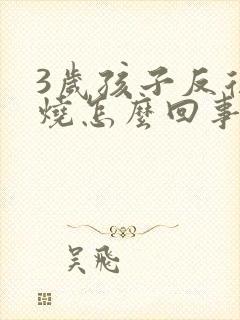 3歲孩子反復
燒怎麼回事
吴飛